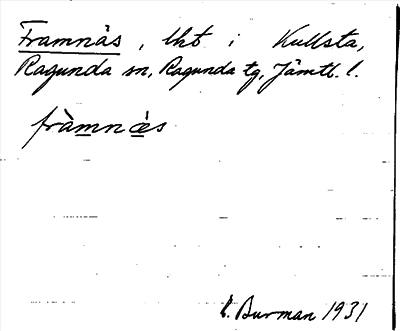 Framnäs, lht i Kullsta,
Ragunda sn, Ragunda tg, Jämtl. l.
fràmnæ̀s
C. Burman 1931